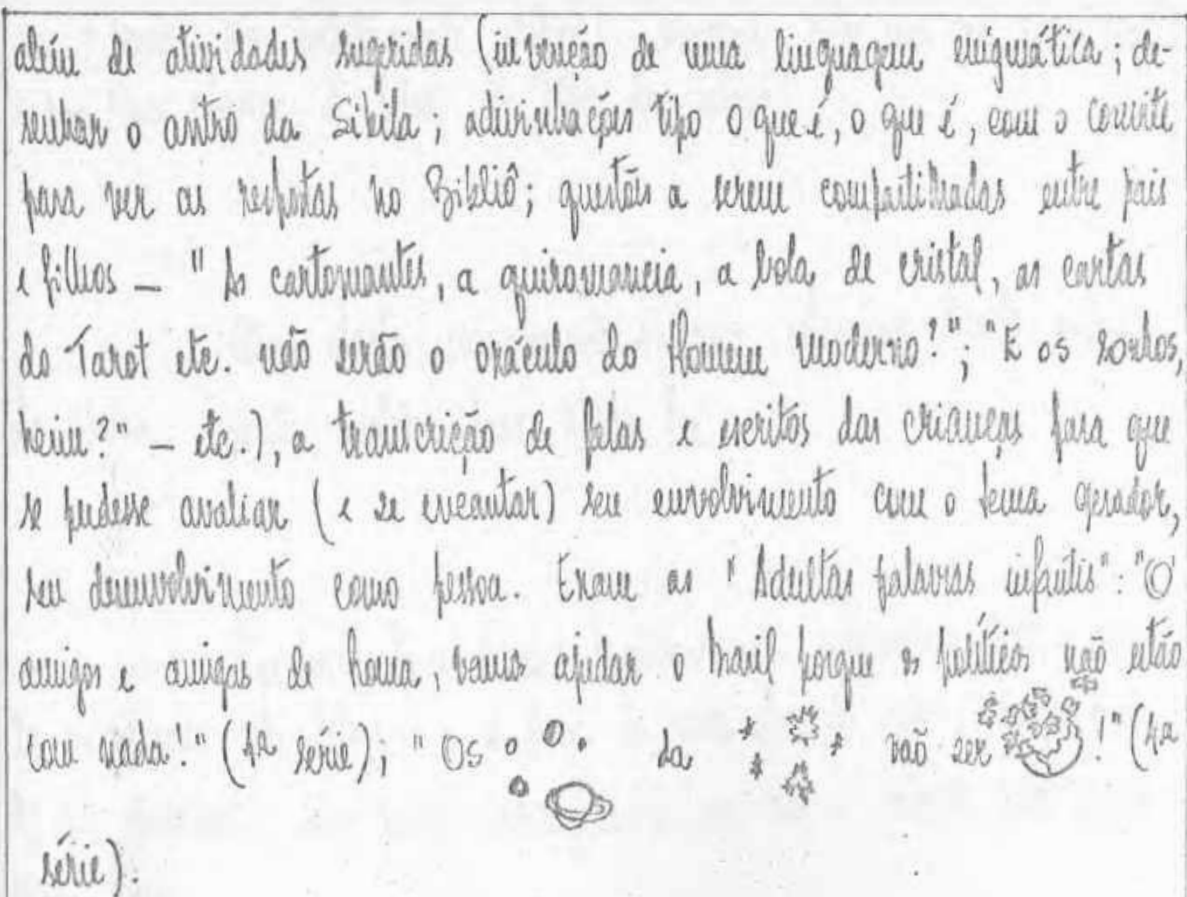 além de atividades sugeridas (invenção de uma linguagem enigmática; de-
senhar o antro da Sibila; adivinhações tipo o que é, o que é, com o convite
para ver as respostas no Bibliô; questões a serem compartilhadas entre pais
e filhos — "As cartomantes, a quiromancia, a bola de cristal, as cartas
do Tarot etc. não serão o oráculo do Homem moderno?"; "E os sonhos,
heim?" — etc.), a transcrição de falas e escritos das crianças para que
se pudesse avaliar (e se encantar) seu envolvimento com o tema gerador,
seu desenvolvimento como pessoa. Eram as "Adultas palavras infantis": "O
amigos e amigas de Roma, vamos ajudar o Brasil porque os políticos não estão
com nada!" (4ª série); "Os da vão ser !" (4ª
série).